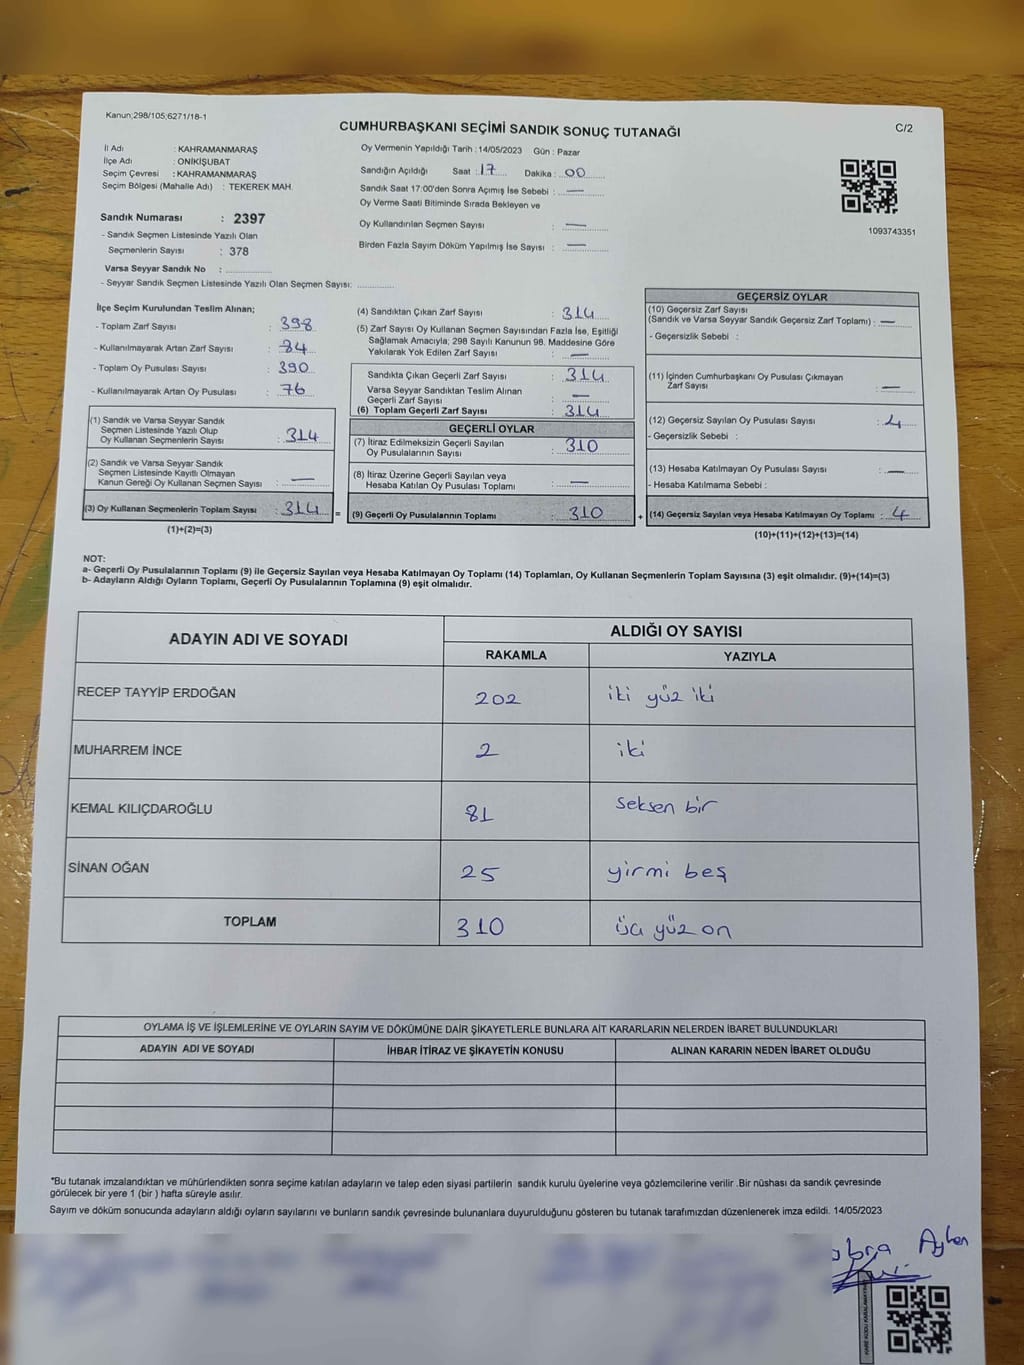 Kanun;298/105;6271/18-1
C/2
CUMHURBAŞKANI SEÇİMİ SANDIK SONUÇ TUTANAĞI
İl Adı : KAHRAMANMARAŞ
İlçe Adı : ONİKİŞUBAT
Seçim Çevresi : KAHRAMANMARAŞ
Seçim Bölgesi (Mahalle Adı) : TEKEREK MAH.
Sandık Numarası : 2397
- Sandık Seçmen Listesinde Yazılı Olan
Seçmenlerin Sayısı : 378
Varsa Seyyar Sandık No : ................
- Seyyar Sandık Seçmen Listesinde Yazılı Olan Seçmen Sayısı: ............
Oy Vermenin Yapıldığı Tarih : 14/05/2023 Gün : Pazar
Sandığın Açıldığı Saat : 17 Dakika : 00
Sandık Saat 17:00'den Sonra Açımış İse Sebebi : —
Oy Verme Saati Bitiminde Sırada Bekleyen ve
Oy Kullandırılan Seçmen Sayısı : —
Birden Fazla Sayım Döküm Yapılmış İse Sayısı : —
1093743351
İlçe Seçim Kurulundan Teslim Alınan;
- Toplam Zarf Sayısı : 398
- Kullanılmayarak Artan Zarf Sayısı : 84
- Toplam Oy Pusulası Sayısı : 390
- Kullanılmayarak Artan Oy Pusulası : 76
(1) Sandık ve Varsa Seyyar Sandık
Seçmen Listesinde Yazılı Olup
Oy Kullanan Seçmenlerin Sayısı : 314
(2) Sandık ve Varsa Seyyar Sandık
Seçmen Listesinde Kayıtlı Olmayan
Kanun Gereği Oy Kullanan Seçmen Sayısı : —
(3) Oy Kullanan Seçmenlerin Toplam Sayısı : 314
(1)+(2)=(3)
(4) Sandıktan Çıkan Zarf Sayısı : 314
(5) Zarf Sayısı Oy Kullanan Seçmen Sayısından Fazla İse, Eşitliği
Sağlamak Amacıyla; 298 Sayılı Kanunun 98. Maddesine Göre
Yakılarak Yok Edilen Zarf Sayısı : —
Sandıkta Çıkan Geçerli Zarf Sayısı : 314
Varsa Seyyar Sandıktan Teslim Alınan
Geçerli Zarf Sayısı : —
(6) Toplam Geçerli Zarf Sayısı : 314
GEÇERLİ OYLAR
(7) İtiraz Edilmeksizin Geçerli Sayılan
Oy Pusulalarının Sayısı : 310
(8) İtiraz Üzerine Geçerli Sayılan veya
Hesaba Katılan Oy Pusulası Toplamı : —
= (9) Geçerli Oy Pusulalarının Toplamı : 310
GEÇERSİZ OYLAR
(10) Geçersiz Zarf Sayısı
(Sandık ve Varsa Seyyar Sandık Geçersiz Zarf Toplamı) : —
- Geçersizlik Sebebi :
(11) İçinden Cumhurbaşkanı Oy Pusulası Çıkmayan
Zarf Sayısı : —
(12) Geçersiz Sayılan Oy Pusulası Sayısı : 4
- Geçersizlik Sebebi :
(13) Hesaba Katılmayan Oy Pusulası Sayısı : —
- Hesaba Katılmama Sebebi :
+ (14) Geçersiz Sayılan veya Hesaba Katılmayan Oy Toplamı : 4
(10)+(11)+(12)+(13)=(14)
NOT:
a- Geçerli Oy Pusulalarının Toplamı (9) ile Geçersiz Sayılan veya Hesaba Katılmayan Oy Toplamı (14) Toplamları, Oy Kullanan Seçmenlerin Toplam Sayısına (3) eşit olmalıdır. (9)+(14)=(3)
b- Adayların Aldığı Oyların Toplamı, Geçerli Oy Pusulalarının Toplamına (9) eşit olmalıdır.
ADAYIN ADI VE SOYADI
ALDIĞI OY SAYISI
RAKAMLA YAZIYLA
RECEP TAYYİP ERDOĞAN 202 iki yüz iki
MUHARREM İNCE 2 iki
KEMAL KILIÇDAROĞLU 81 seksen bir
SİNAN OĞAN 25 yirmi beş
TOPLAM 310 üç yüz on
OYLAMA İŞ VE İŞLEMLERİNE VE OYLARIN SAYIM VE DÖKÜMÜNE DAİR ŞİKAYETLERLE BUNLARA AİT KARARLARIN NELERDEN İBARET BULUNDUKLARI
ADAYIN ADI VE SOYADI İHBAR İTİRAZ VE ŞİKAYETİN KONUSU ALINAN KARARIN NEDEN İBARET OLDUĞU
*Bu tutanak imzalandıktan ve mühürlendikten sonra seçime katılan adayların ve talep eden siyasi partilerin sandık kurulu üyelerine veya gözlemcilerine verilir .Bir nüshası da sandık çevresinde
görülecek bir yere 1 (bir ) hafta süreyle asılır.
Sayım ve döküm sonucunda adayların aldığı oyların sayılarını ve bunların sandık çevresinde bulunanlara duyurulduğunu gösteren bu tutanak tarafımızdan düzenlenerek imza edildi. 14/05/2023